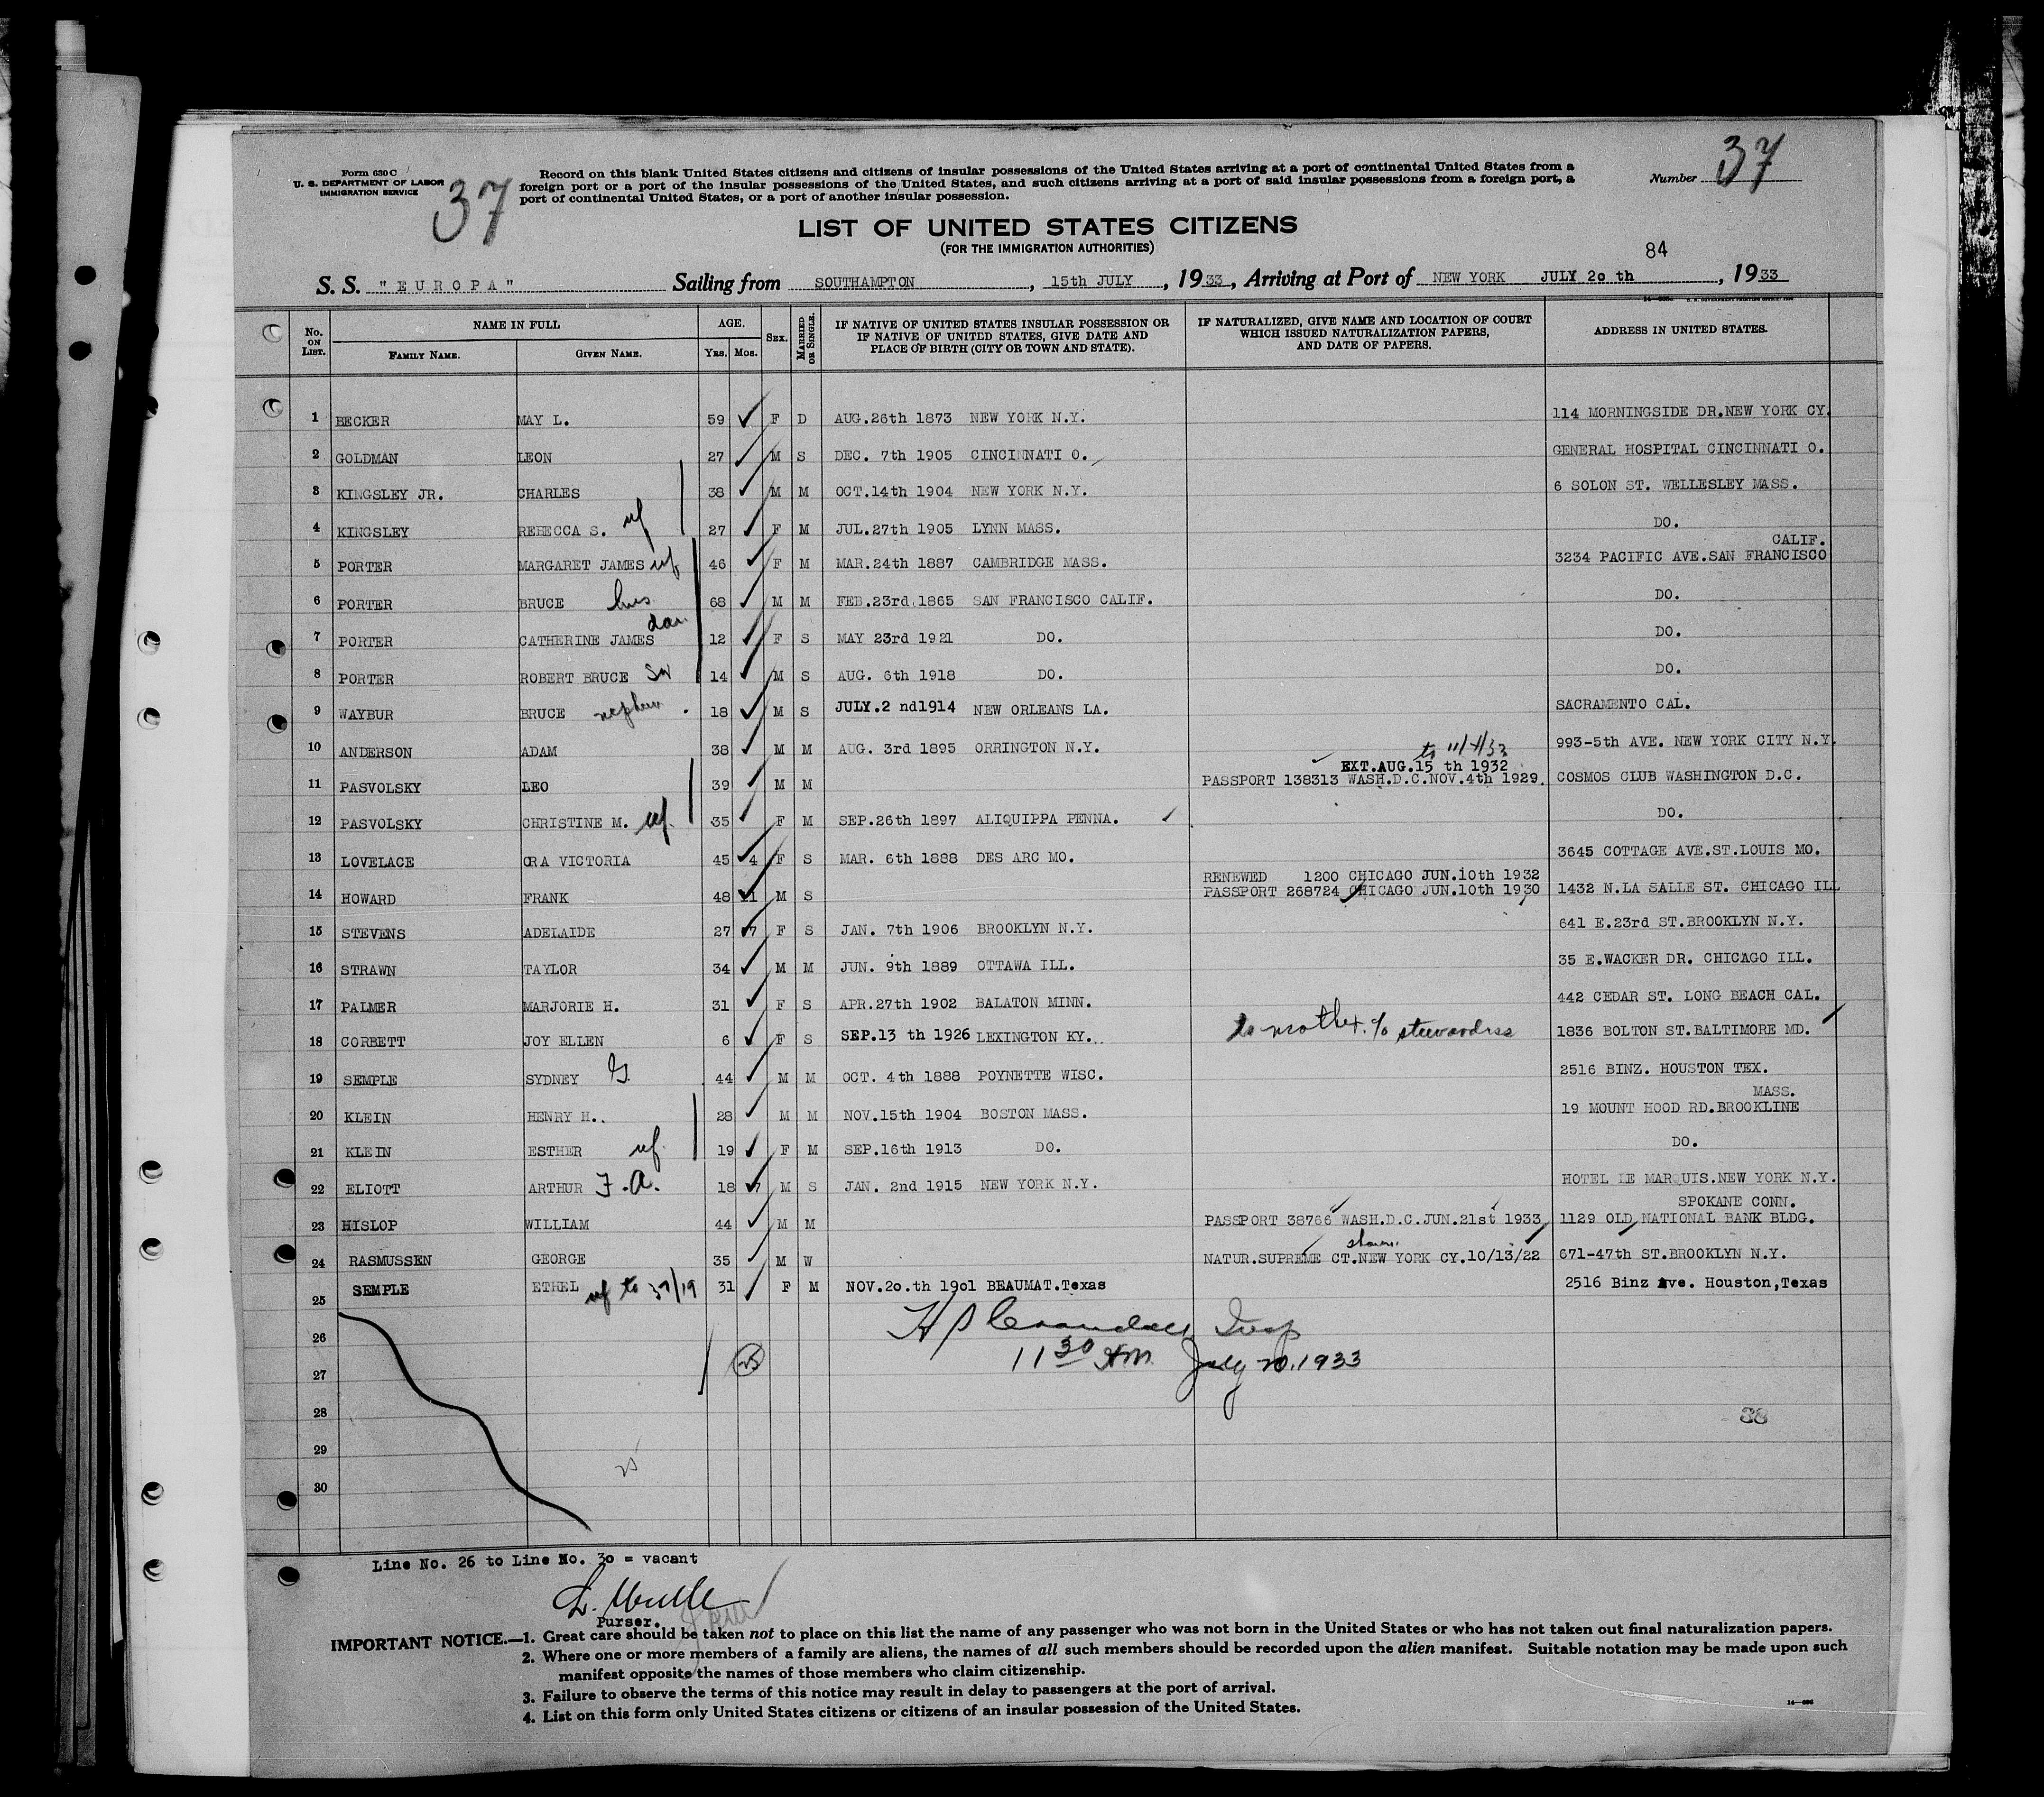 Form 630 C
U. S. DEPARTMENT OF LABOR
IMMIGRATION SERVICE
37
Record on this blank United States citizens and citizens of insular possessions of the United States arriving at a port of continental United States from a
foreign port or a port of the insular possessions of the United States, and such citizens arriving at a port of said insular possessions from a foreign port, a
port of continental United States, or a port of another insular possession.
Number 37
LIST OF UNITED STATES CITIZENS
(FOR THE IMMIGRATION AUTHORITIES)
84
S. S. "EUROPA" Sailing from SOUTHAMPTON, 15th JULY, 1933, Arriving at Port of NEW YORK JULY 20 th, 1933
No. ON LIST. NAME IN FULL FAMILY NAME. GIVEN NAME. AGE. YRS. MOS. SEX. MARRIED OR SINGLE. IF NATIVE OF UNITED STATES INSULAR POSSESSION OR IF NATIVE OF UNITED STATES, GIVE DATE AND PLACE OF BIRTH (CITY OR TOWN AND STATE). IF NATURALIZED, GIVE NAME AND LOCATION OF COURT WHICH ISSUED NATURALIZATION PAPERS, AND DATE OF PAPERS. ADDRESS IN UNITED STATES.
1 BECKER MAY L. 59 F D AUG.26th 1873 NEW YORK N.Y. 114 MORNINGSIDE DR.NEW YORK CY.
2 GOLDMAN LEON 27 M S DEC. 7th 1905 CINCINNATI O. GENERAL HOSPITAL CINCINNATI O.
3 KINGSLEY JR. CHARLES 38 M M OCT.14th 1904 NEW YORK N.Y. 6 SOLON ST. WELLESLEY MASS.
4 KINGSLEY REBECCA S. wf 27 F M JUL.27th 1905 LYNN MASS. DO.
CALIF.
5 PORTER MARGARET JAMES wf 46 F M MAR.24th 1887 CAMBRIDGE MASS. 3234 PACIFIC AVE.SAN FRANCISCO
6 PORTER BRUCE hus 68 M M FEB.23rd 1865 SAN FRANCISCO CALIF. DO.
7 PORTER CATHERINE JAMES dau 12 F S MAY 23rd 1921 DO. DO.
8 PORTER ROBERT BRUCE Sn 14 M S AUG. 6th 1918 DO. DO.
9 WAYBUR BRUCE nephew 18 M S JULY.2 nd1914 NEW ORLEANS LA. SACRAMENTO CAL.
10 ANDERSON ADAM 38 M M AUG. 3rd 1895 ORRINGTON N.Y. 993-5th AVE. NEW YORK CITY N.Y.
to 11/4/33
EXT.AUG.15 th 1932
11 PASVOLSKY LEO 39 M M PASSPORT 138313 WASH.D.C.NOV.4th 1929. COSMOS CLUB WASHINGTON D.C.
12 PASVOLSKY CHRISTINE M. wf. 35 F M SEP.26th 1897 ALIQUIPPA PENNA. DO.
13 LOVELACE ORA VICTORIA 45 4 F S MAR. 6th 1888 DES ARC MO. 3645 COTTAGE AVE.ST.LOUIS MO.
RENEWED 1200 CHICAGO JUN.10th 1932
14 HOWARD FRANK 48 11 M S PASSPORT 268724 CHICAGO JUN.10th 1930 1432 N.LA SALLE ST. CHICAGO ILL
15 STEVENS ADELAIDE 27 7 F S JAN. 7th 1906 BROOKLYN N.Y. 641 E.23rd ST.BROOKLYN N.Y.
16 STRAWN TAYLOR 34 M M JUN. 9th 1889 OTTAWA ILL. 35 E.WACKER DR. CHICAGO ILL.
17 PALMER MARJORIE H. 31 F S APR.27th 1902 BALATON MINN. 442 CEDAR ST. LONG BEACH CAL.
18 CORBETT JOY ELLEN 6 F S SEP.13 th 1926 LEXINGTON KY. to mother. c/o stewardess 1836 BOLTON ST.BALTIMORE MD.
19 SEMPLE SYDNEY G. 44 M M OCT. 4th 1888 POYNETTE WISC. 2516 BINZ. HOUSTON TEX.
MASS.
20 KLEIN HENRY H. 28 M M NOV.15th 1904 BOSTON MASS. 19 MOUNT HOOD RD.BROOKLINE
21 KLEIN ESTHER wf. 19 F M SEP.16th 1913 DO. DO.
22 ELIOTT ARTHUR F.A. 18 M S JAN. 2nd 1915 NEW YORK N.Y. HOTEL LE MARQUIS.NEW YORK N.Y.
SPOKANE CONN.
23 HISLOP WILLIAM 44 M M PASSPORT 38766 WASH.D.C.JUN.21st 1933 1129 OLD NATIONAL BANK BLDG.
24 RASMUSSEN GEORGE 35 M W NATUR.SUPREME CT.NEW YORK CY.10/13/22 671-47th ST.BROOKLYN N.Y.
25 SEMPLE ETHEL wf to 37/19 31 F M NOV.20.th 1901 BEAUMAT.Texas 2516 Binz Ave. Houston,Texas
26 Insp
27 25 11 30 AM. July 20, 1933
28 38
29 25
30
Line No. 26 to Line No. 30 = vacant
Purser.
IMPORTANT NOTICE.—1. Great care should be taken not to place on this list the name of any passenger who was not born in the United States or who has not taken out final naturalization papers.
2. Where one or more members of a family are aliens, the names of all such members should be recorded upon the alien manifest. Suitable notation may be made upon such
manifest opposite the names of those members who claim citizenship.
3. Failure to observe the terms of this notice may result in delay to passengers at the port of arrival.
4. List on this form only United States citizens or citizens of an insular possession of the United States.